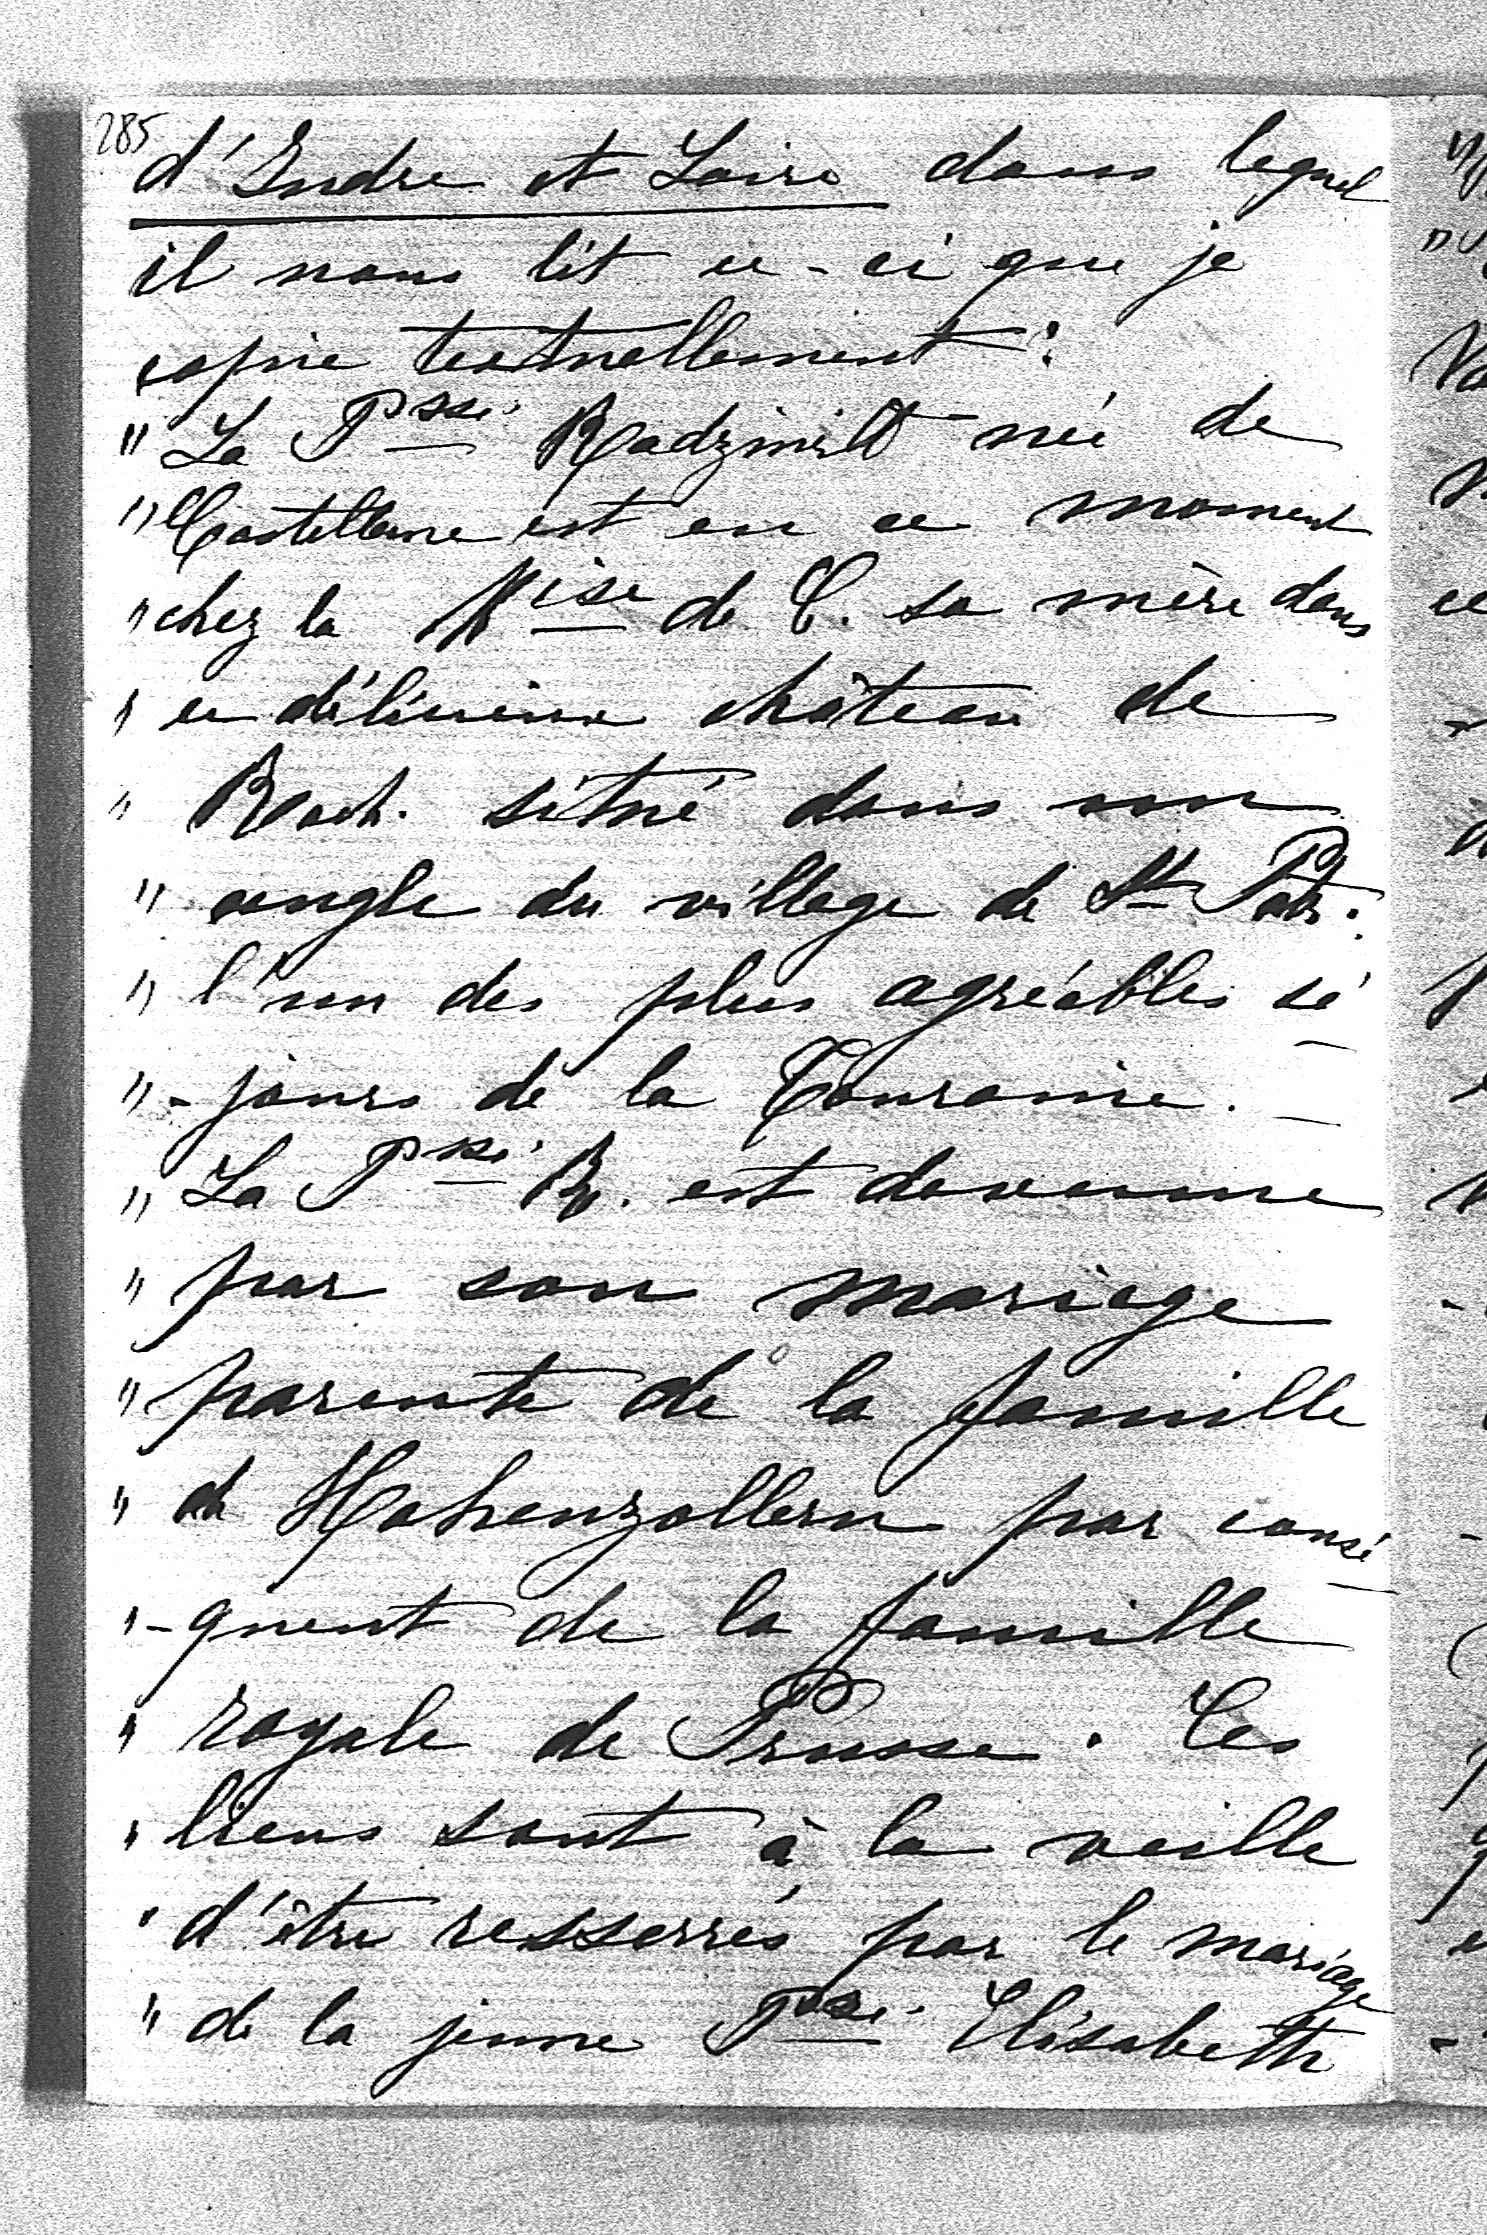 285
d'Indre et Loire dans lequel
il nous lit ce-ci que je
copie textuellement:
" La Psse. Radziwill née de
" Castellane est en ce moment
" chez la Mise de C. sa mère dans
" ce délicieux château de
" Roch. situé dans un
" angle du village de St Patr.
" l'un des plus agréables sé
" -jours de la Touraine.
" La Psse. R. est devenue
" par son mariage
" parente de la famille
" de Hohenzollern par consé
" -quent de la famille
" royale de Prusse. Ces
" liens sont à la veille
" d'être resserrés par le mariage
" de la jeune Psse. Elisabeth